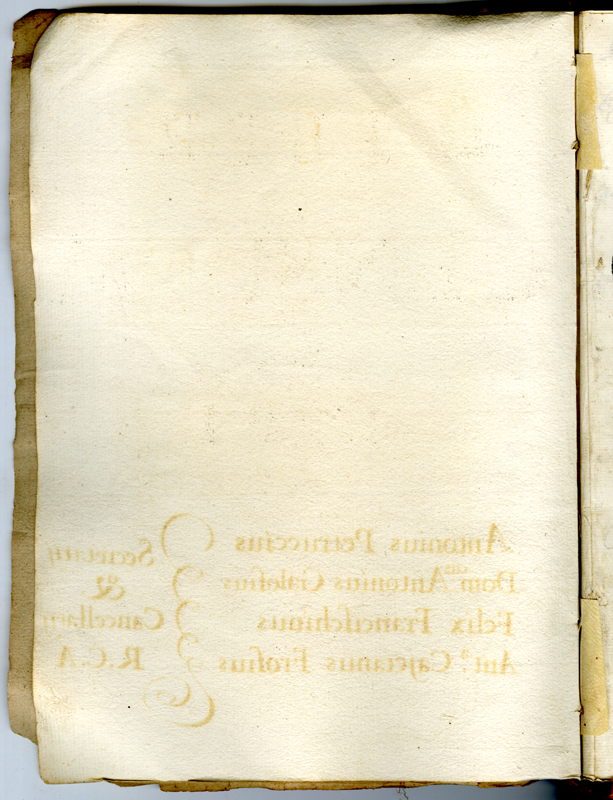 Antonius Petruccius Secretarij
Dom.cus Antonius Galosius &
Felix Francischinus Cancellarij
Ant.s Cajetanus Frosius R.C.A